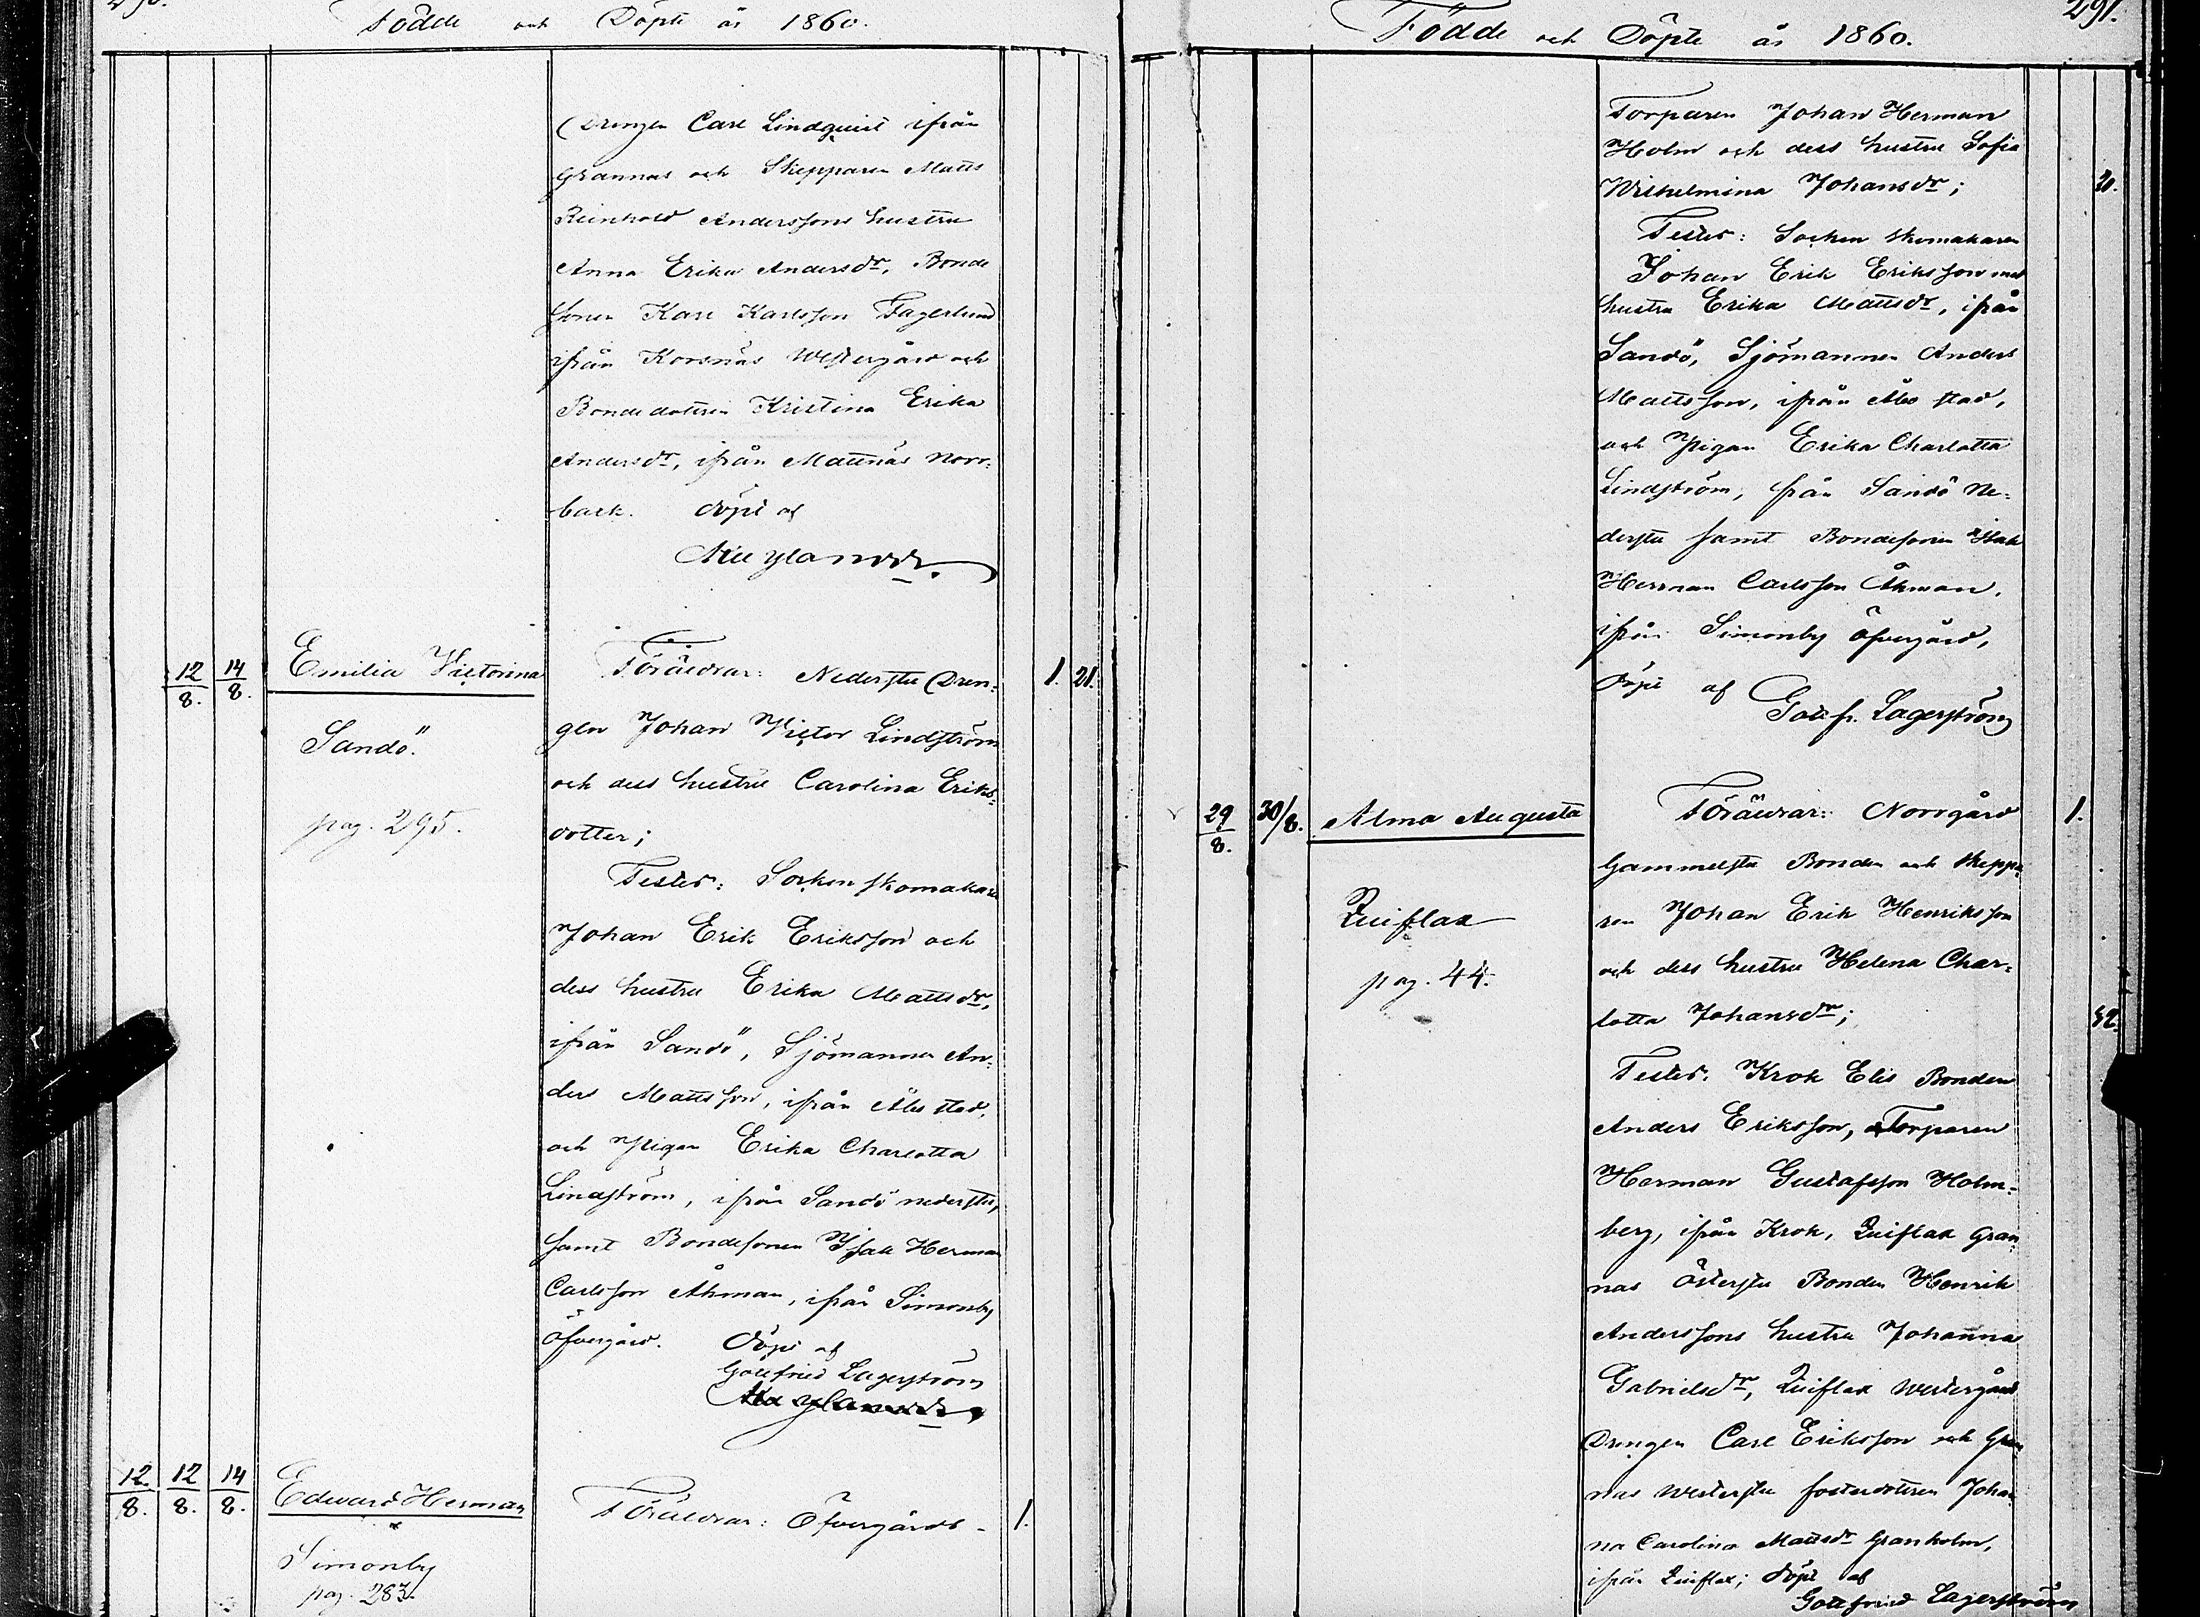 290.
Födde och Döpte år 1860.
Drengen Carl Lindquist ifrån
Grannas och Skepparen Matts
Reinhold Anderssons hustru
Anna Erika Andersdr, Bonde
sonen Karl Karlsson Fagerlund
ifrån Korsnäs Westergård och
Bondedottren Kristina Erika
Andersdr, ifrån Mattnäs Norr-
back. döpt af
12/8. 14/8. Emilia Victorina
Sandö.
pag. 295.
Föräldrar: Nedersta Dren- 1. 21.
gen Johan Victor Lindström
och dess hustru Carolina Eriks-
dotter;
Testes: Sockenskomakaren
Johan Erik Eriksson och
dess hustru Erika Mattsdr,
ifrån Sandö, Sjömannen An-
ders Mattsson, ifrån Åbo stad,
och Pigan Erika Charlotta
Lindström, ifrån Sandö nedersta,
samt Bondesonen Isak Herman
Carlsson Åhman, ifrån Simonby
Öfvergård. döpt af
Gottfried Lagerström
12/8. 12/8. 14/8. Edward Herman
Simonby
pag. 283.
Föräldrar: Öfvergårds- 1.
291.
Födde och Döpte år 1860.
Torparen Johan Herman
Holm och dess hustru Sofia
Wilhelmina Johansdr;
Testes: Socken skomakaren
Johan Erik Eriksson med
hustru Erika Mattsdr, ifrån
Sandö, Sjömannen Anders
Mattsson, ifrån Åbo stad,
och Pigan Erika Charlotta
Lindström, från Sandö Ne-
dersta samt Bondesonen Isak
Herman Carlsson Åhman,
ifrån Simonby Öfvergård,
Döpt af
Gottfr. Lagerström
29/8. 30/8. Alma Augusta
Quiflax
pag. 44.
Föräldrar: Norrgård 1.
Gammelsta Bonden och Skeppa-
ren Johan Erik Henriksson
och dess hustru Helena Char-
lotta Johansdr;
Testes. Krok Elis Bonden
Anders Eriksson, Torparen
Herman Gustafsson Holm-
berg, ifrån Krok, Quiflax Gran
nas Östersta Bonden Henrik
Anderssons hustru Johanna
Gabrielsdr, Quiflax Westergård
Drengen Carl Eriksson och Gran
nas Westersta fosterdottren Johan
na Carolina Mattsdr Granholm,
ifrån Quiflax; döpt af
Gottfried Lagerström